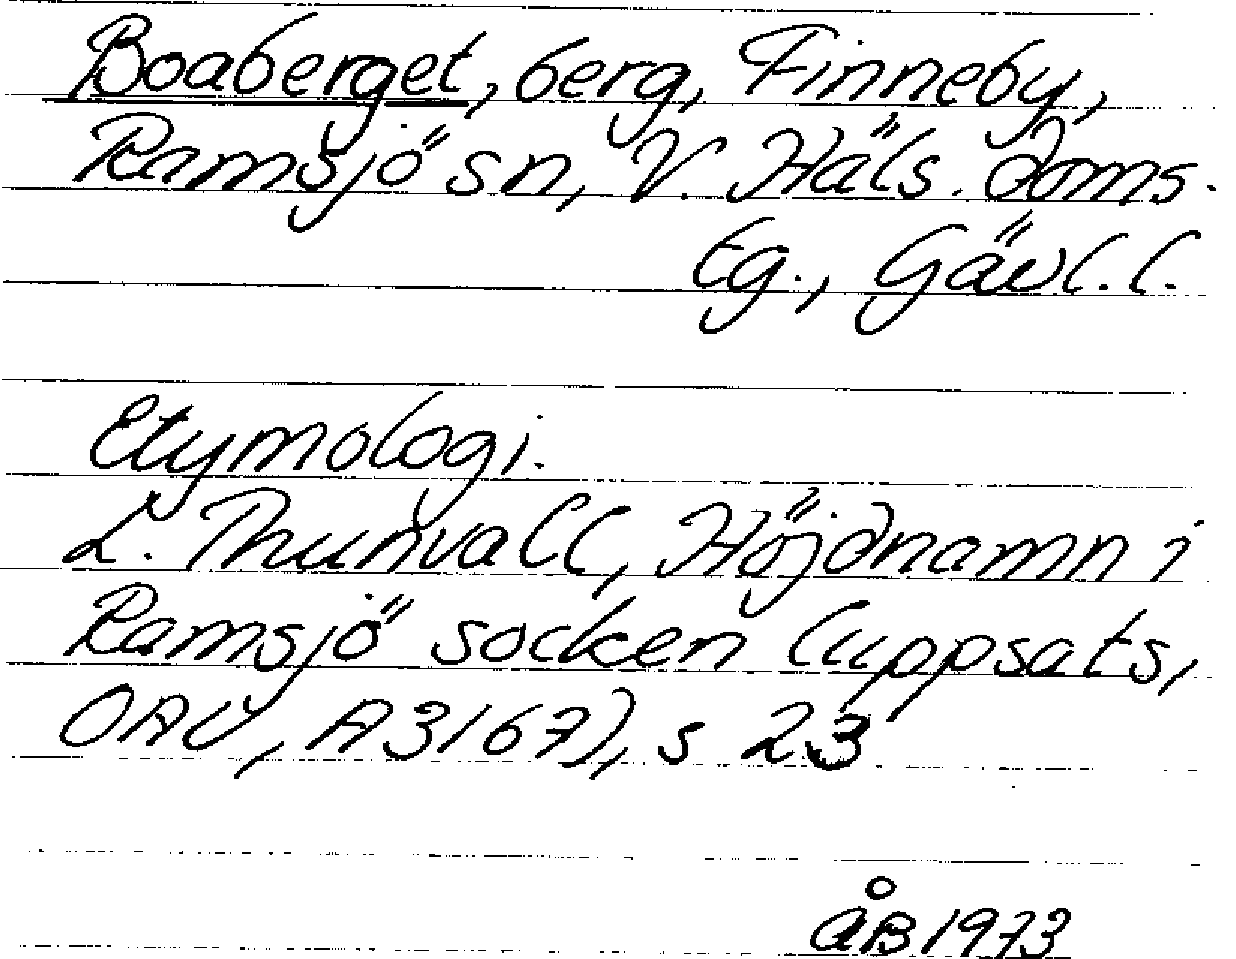 Boaberget, berg, Finneby,
Ramsjö sn, V. Häls. doms.
tg., Gävl. l.
Etymologi.
L. Thunvall, Höjdnamn i
Ramsjö socken (uppsats,
OAU, A3167), s 23
ÅB 1973